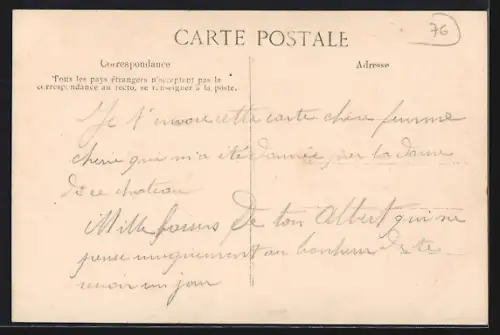 76
CARTE POSTALE
Correspondance
Adresse
Tous les pays étrangers n'acceptent pas la
correspondance au recto, se renseigner à la poste.
Je t'envoie cette carte chère femme
cherie qui m'a été donnée par la dame
de ce chateau
Mille baisers De ton Albert qui ne
pense uniquement au bonheur de te
revoir un jour